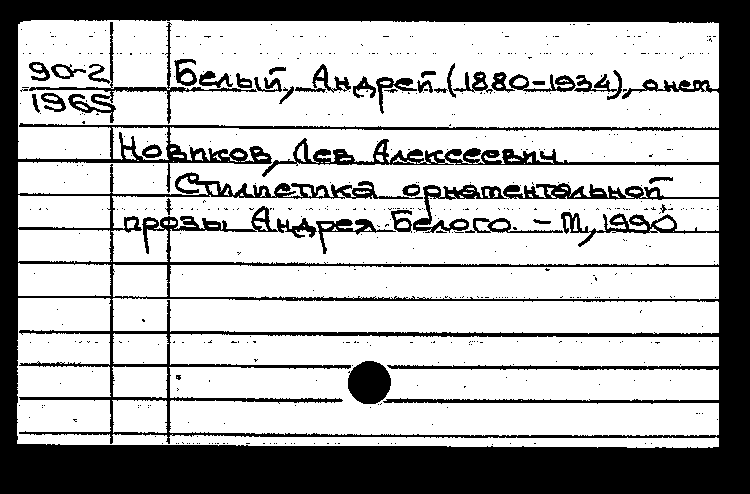 90-2
1965
Белый, Андрей (1880-1934), о нем
Новиков, Лев Алексеевич.
Стилистика орнаментальной
прозы Андрея Белого. - М., 1990